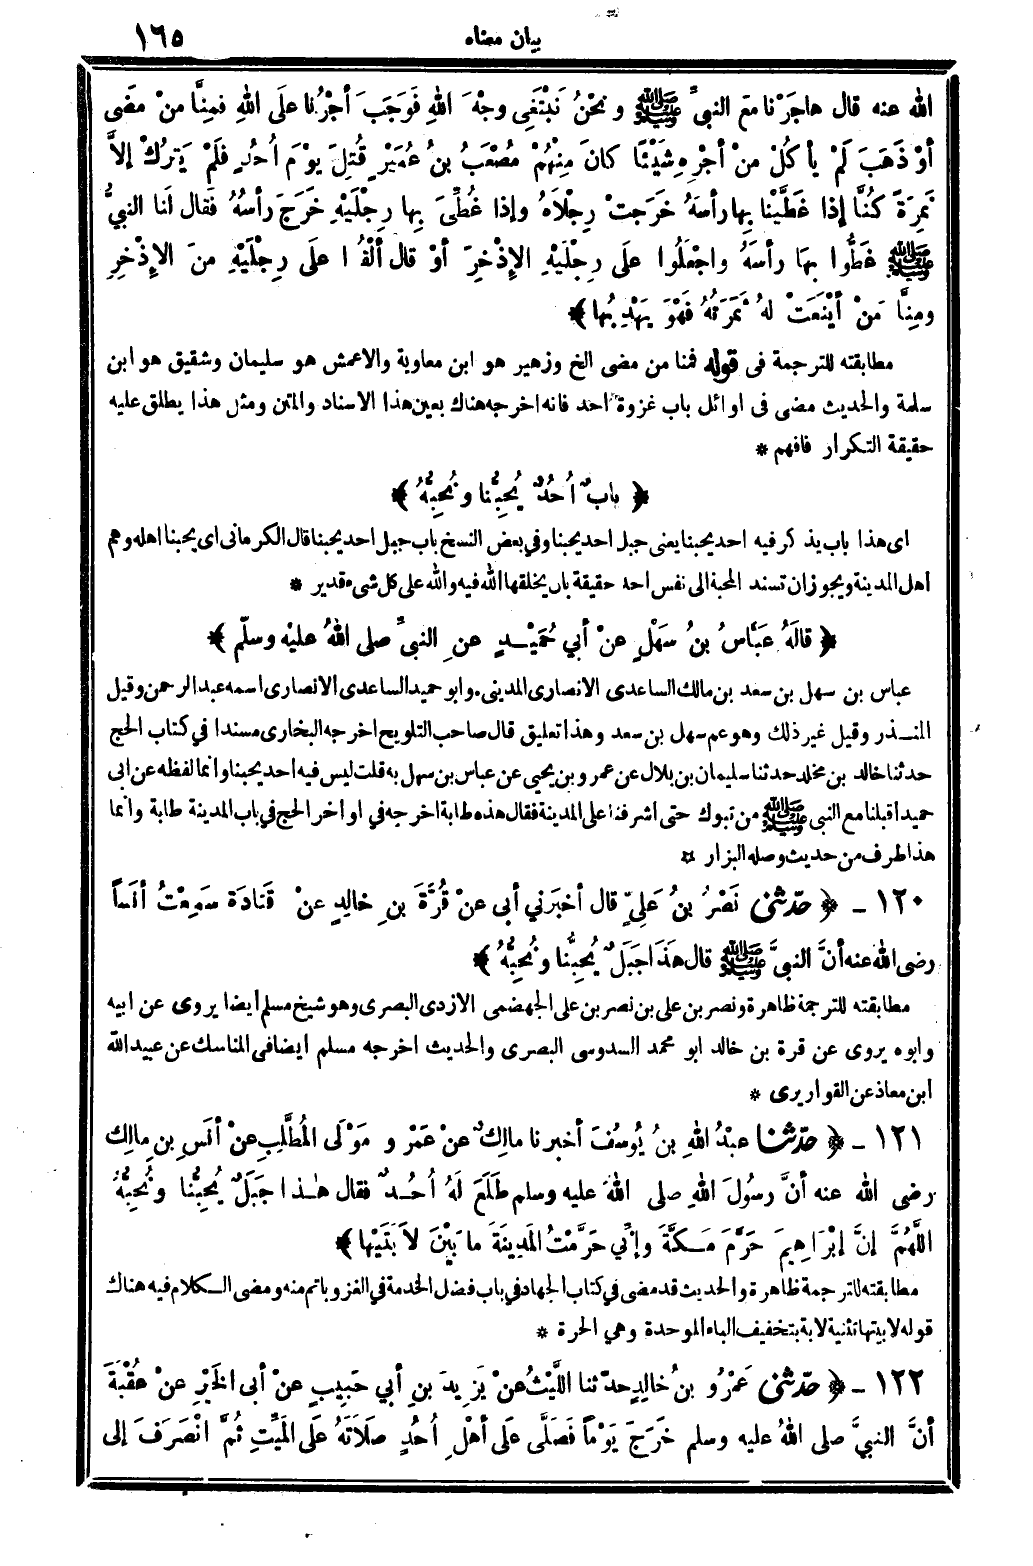 بيان معناه ١٦٥
الله عنه قال هاجَرْنا معَ النبيِّ ﷺ ونحْنُ نَبْتَغِي وجْهَ اللهِ فَوَجَبَ أجْرُنا علَى اللهِ فَمِنَّا مَنْ مَضَى
أوْ ذَهَبَ لَمْ يأ كُلْ منْ أجْرِهِ شَيْئًا كانَ مِنْهُمْ مُصْعَبُ بنُ عُمَيْرٍ قُتِلَ يوْمَ أُحُدٍ فلَمْ يَترُكْ إلاَّ
نَمِرَةً كُنَّا إذا غَطَّيْنا بِها رأسَهُ خَرَجَتْ رِجْلاَهُ وإذا غُطِّىَ بِها رِجْلَيْهِ خَرَجَ رأسُهُ فقال لَنا النبيُّ
ﷺ غَطُّوا بِهَا رأسَهُ واجْعَلُوا علَى رِجْلَيْهِ الإذْخِرَ أوْ قال ألْقُوا علَى رِجْلَيْهِ منَ الإِذْخِرِ
ومِنَّا مَنْ أيْنَعَتْ لهُ ثَمَرَتُهُ فَهْوَ يَهْدِبُها ﴾
مطابقته للترجمة فى قوله فمنا من مضى الخ وزهير هو ابن معاوية والاعمش هو سليمان وشقيق هو ابن
سلمة والحديث مضى فى اوائل باب غزوة احد فانه اخرجه هناك بعين هذا الاسناد والمتن ومثل هذا يطلق عليه
حقيقة التكرار فافهم *
﴿ بابٌ أُحُدٌ يُحِبُّنا ونُحِبُّهُ ﴾
اى هذا باب يذ كر فيه احد يحبنا يعنى جبل احد يحبنا وفي بعض النسخ باب جبل احد يحبنا قال الكرمانى اى يحبنا اهله وهم
اهل المدينة ويجوز ان تسند المحبة الى نفس احد حقيقة بان يخلقها الله فيه والله على كل شىء قدير *
﴿ قالَهُ عَبَّاسُ بنُ سَهْلٍ عنْ أبي حُمَيْدٍ عنِ النبيِّ صلى اللهُ عليْه وسلّم ﴾
عباس بن سهل بن سعد بن مالك الساعدى الانصارى المدينى. وابو حميد الساعدى الانصارى اسمه عبد الرحمن وقيل
المنذر وقيل غير ذلك وهو عم سهل بن سعد وهذا تعليق قال صاحب التلويح اخرجه البخارى مسندا في كتاب الحج
حدثنا خالد بن مخلد حدثنا سليمان بن بلال عن عمرو بن يحيى عن عباس بن سهل به قلت ليس فيه احد يحبنا وانما لفظه عن ابى
حميد اقبلنا مع النبى ﷺ من تبوك حتى اشرفنا على المدينة فقال هذه طابة اخرجه في اواخر الحج في باب المدينة طابة وانما
هذا طرف من حديث وصله البزار *
١٢٠ ـ ﴿ حدّثنى نَصْرُ بنُ عَلِيٍّ قال أخبَرَني أبى عنْ قُرَّةَ بنِ خالِدٍ عنْ قَتَادَةَ سَمِعْتُ أنَساً
رضى الله عنه أنَّ النبيَّ ﷺ قال هَذَا جَبَلٌ يُحِبُّنا ونُحِبُّهُ ﴾
مطابقته للترجمة ظاهرة ونصر بن على بن نصر بن على الجهضمى الازدى البصرى وهو شيخ مسلم أيضا يروى عن ابيه
وابوه يروى عن قرة بن خالد ابو محمد السدوسى البصرى والحديث اخرجه مسلم ايضا فى المناسك عن عبيد الله
ابن معاذ عن القواريرى *
١٢١ ـ ﴿ حدّثنا عبْدُ اللهِ بنُ يُوسُفَ أخبرنا مالِكٌ عنْ عَمْرٍو مَوْلَى المُطَّلِبِ عنْ أنَسِ بنِ مالِكٍ
رضى الله عنه أنَّ رسُولَ اللهِ صلى اللهُ عليه وسلم طَلَعَ لَهُ أُحُدٌ فقال هٰذا جَبَلٌ يُحِبُّنا ونُحِبُّهُ
اللَّهُمَّ إنَّ إبْرَاهِيمَ حَرَّمَ مَكَّةَ وإنِّي حَرَّمْتُ المَدِينَةَ ما بَيْنَ لاَبَتَيْها ﴾
مطابقته للترجمة ظاهرة والحديث قد مضى في كتاب الجهاد في باب فضل الخدمة في الغزو باتم منه ومضى الكلام فيه هناك
قوله لابيتها تثنية لابة بتخفيف الباء الموحدة وهي الحرة *
١٢٢ ـ ﴿ حدّثنى عَمْرُو بنُ خالِدٍ حدّثنا اللَّيْثُ عنْ يَزِيدَ بنِ أبي حَبِيبٍ عنْ أبى الخَيْرِ عنْ عُقْبَةَ
أنَّ النبيَّ صلى اللهُ عليه وسلم خَرَجَ يَوْماً فَصَلَّى علَى أهْلِ أُحُدٍ صلَاتَهُ علَى المَيِّتِ ثُمَّ انْصَرَفَ إلى